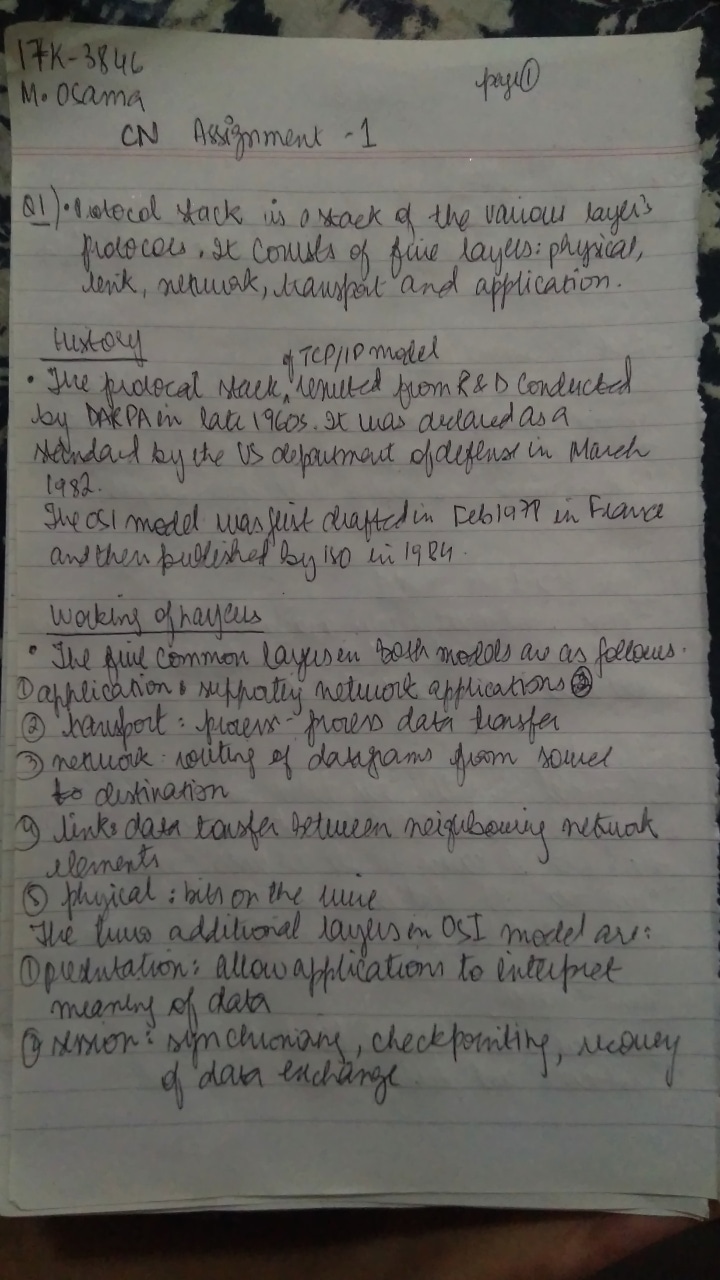 17K-3846
page ①
M. Osama
CN Assignment -1
Q1) • Protocol stack is a stack of the various layer's
protocols. It consists of five layers: physical,
link, network, transport and application.
History
of TCP/IP model
• The protocol stack, resulted from R&D conducted
by DARPA in late 1960s. It was declared as a
standard by the US department of defense in March
1982.
The OSI model was first drafted in Feb 1978 in France
and then published by ISO in 1984.
Working of Layers
• The five common layers in both models are as follows.
① application: supporting network applications
② transport: process-process data transfer
③ network: routing of datagrams from source
to destination
④ link: data transfer between neighbouring network
elements
⑤ physical: bits on the wire
The two additional layers in OSI model are:
① presentation: allow applications to interpret
meaning of data
② session: synchronizing, checkpointing, recovery
of data exchange